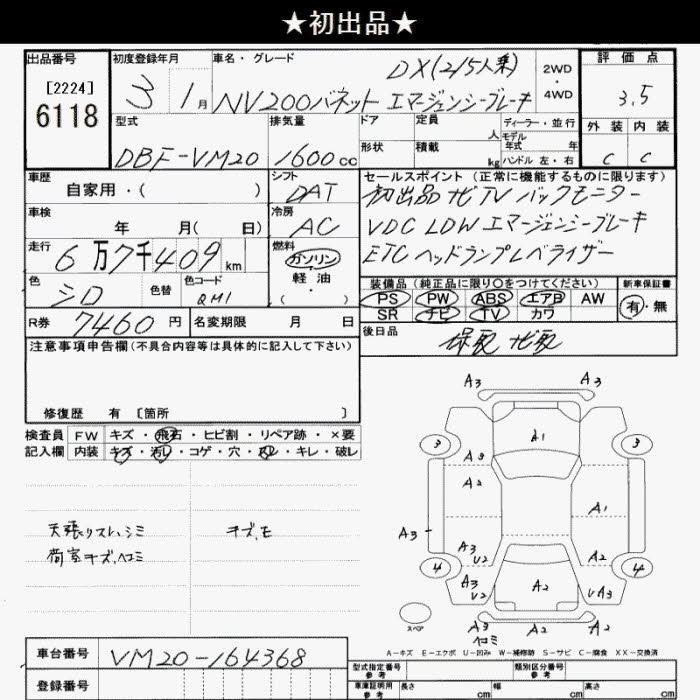 ★初出品★
出品番号
[2224]
6118
初度登録年月
3 1月
車名・グレード
DX(2/5人乗)
NV200バネット エマージェンシーブレーキ
2WD
・
4WD
評価点
3.5
外装 内装
C C
型式
DBF-VM20
排気量
1600cc
ドア
形状
定員
人
積載
kg
ディーラー・並行
モデル
年式 年
ハンドル 左・右
車歴
自家用・( )
シフト
DAT
セールスポイント (正常に機能するものに限ります)
初出品 ナビ TV バックモニター
VDC LDW エマージェンシーブレーキ
ETC ヘッドランプレベライザー
車検
年 月( 日)
冷房
AC
走行
6万7千409km
燃料
ガソリン
軽油
( ・ )
色
シロ
色替
色コード
QM1
装備品 (純正品に限り○をつけてください)
PS PW ABS エアB AW
SR ナビ TV カワ
新車保証書
有・無
R券
7460円
名変期限 月 日
後日品
保取 ナビ取
注意事項申告欄(不具合内容等は具体的に記入して下さい)
修復歴 有 〔箇所 〕
検査員 FW キズ・飛石・ヒビ割・リペア跡・×要
記入欄 内装 キズ・汚レ・コゲ・穴・スレ・キレ・破レ
天張りスレ、シミ
荷室キズ、ヘコミ
キズ、モ
A3 A3
A1
3 3
A3
A2
A1
A3
A3
U2
A2
4 4
A3
U2
A2
UA3
スペア
A3
ヘコミ
A2
A2
A-キズ E-エクボ U-凹み W-補修跡 S-サビ C-腐食 XX-交換済
車台番号
VM20-164368
登録番号
型式指定番号
参考
類別区分番号
参考
車庫証明用
参考
長さ cm
幅 cm
高さ cm